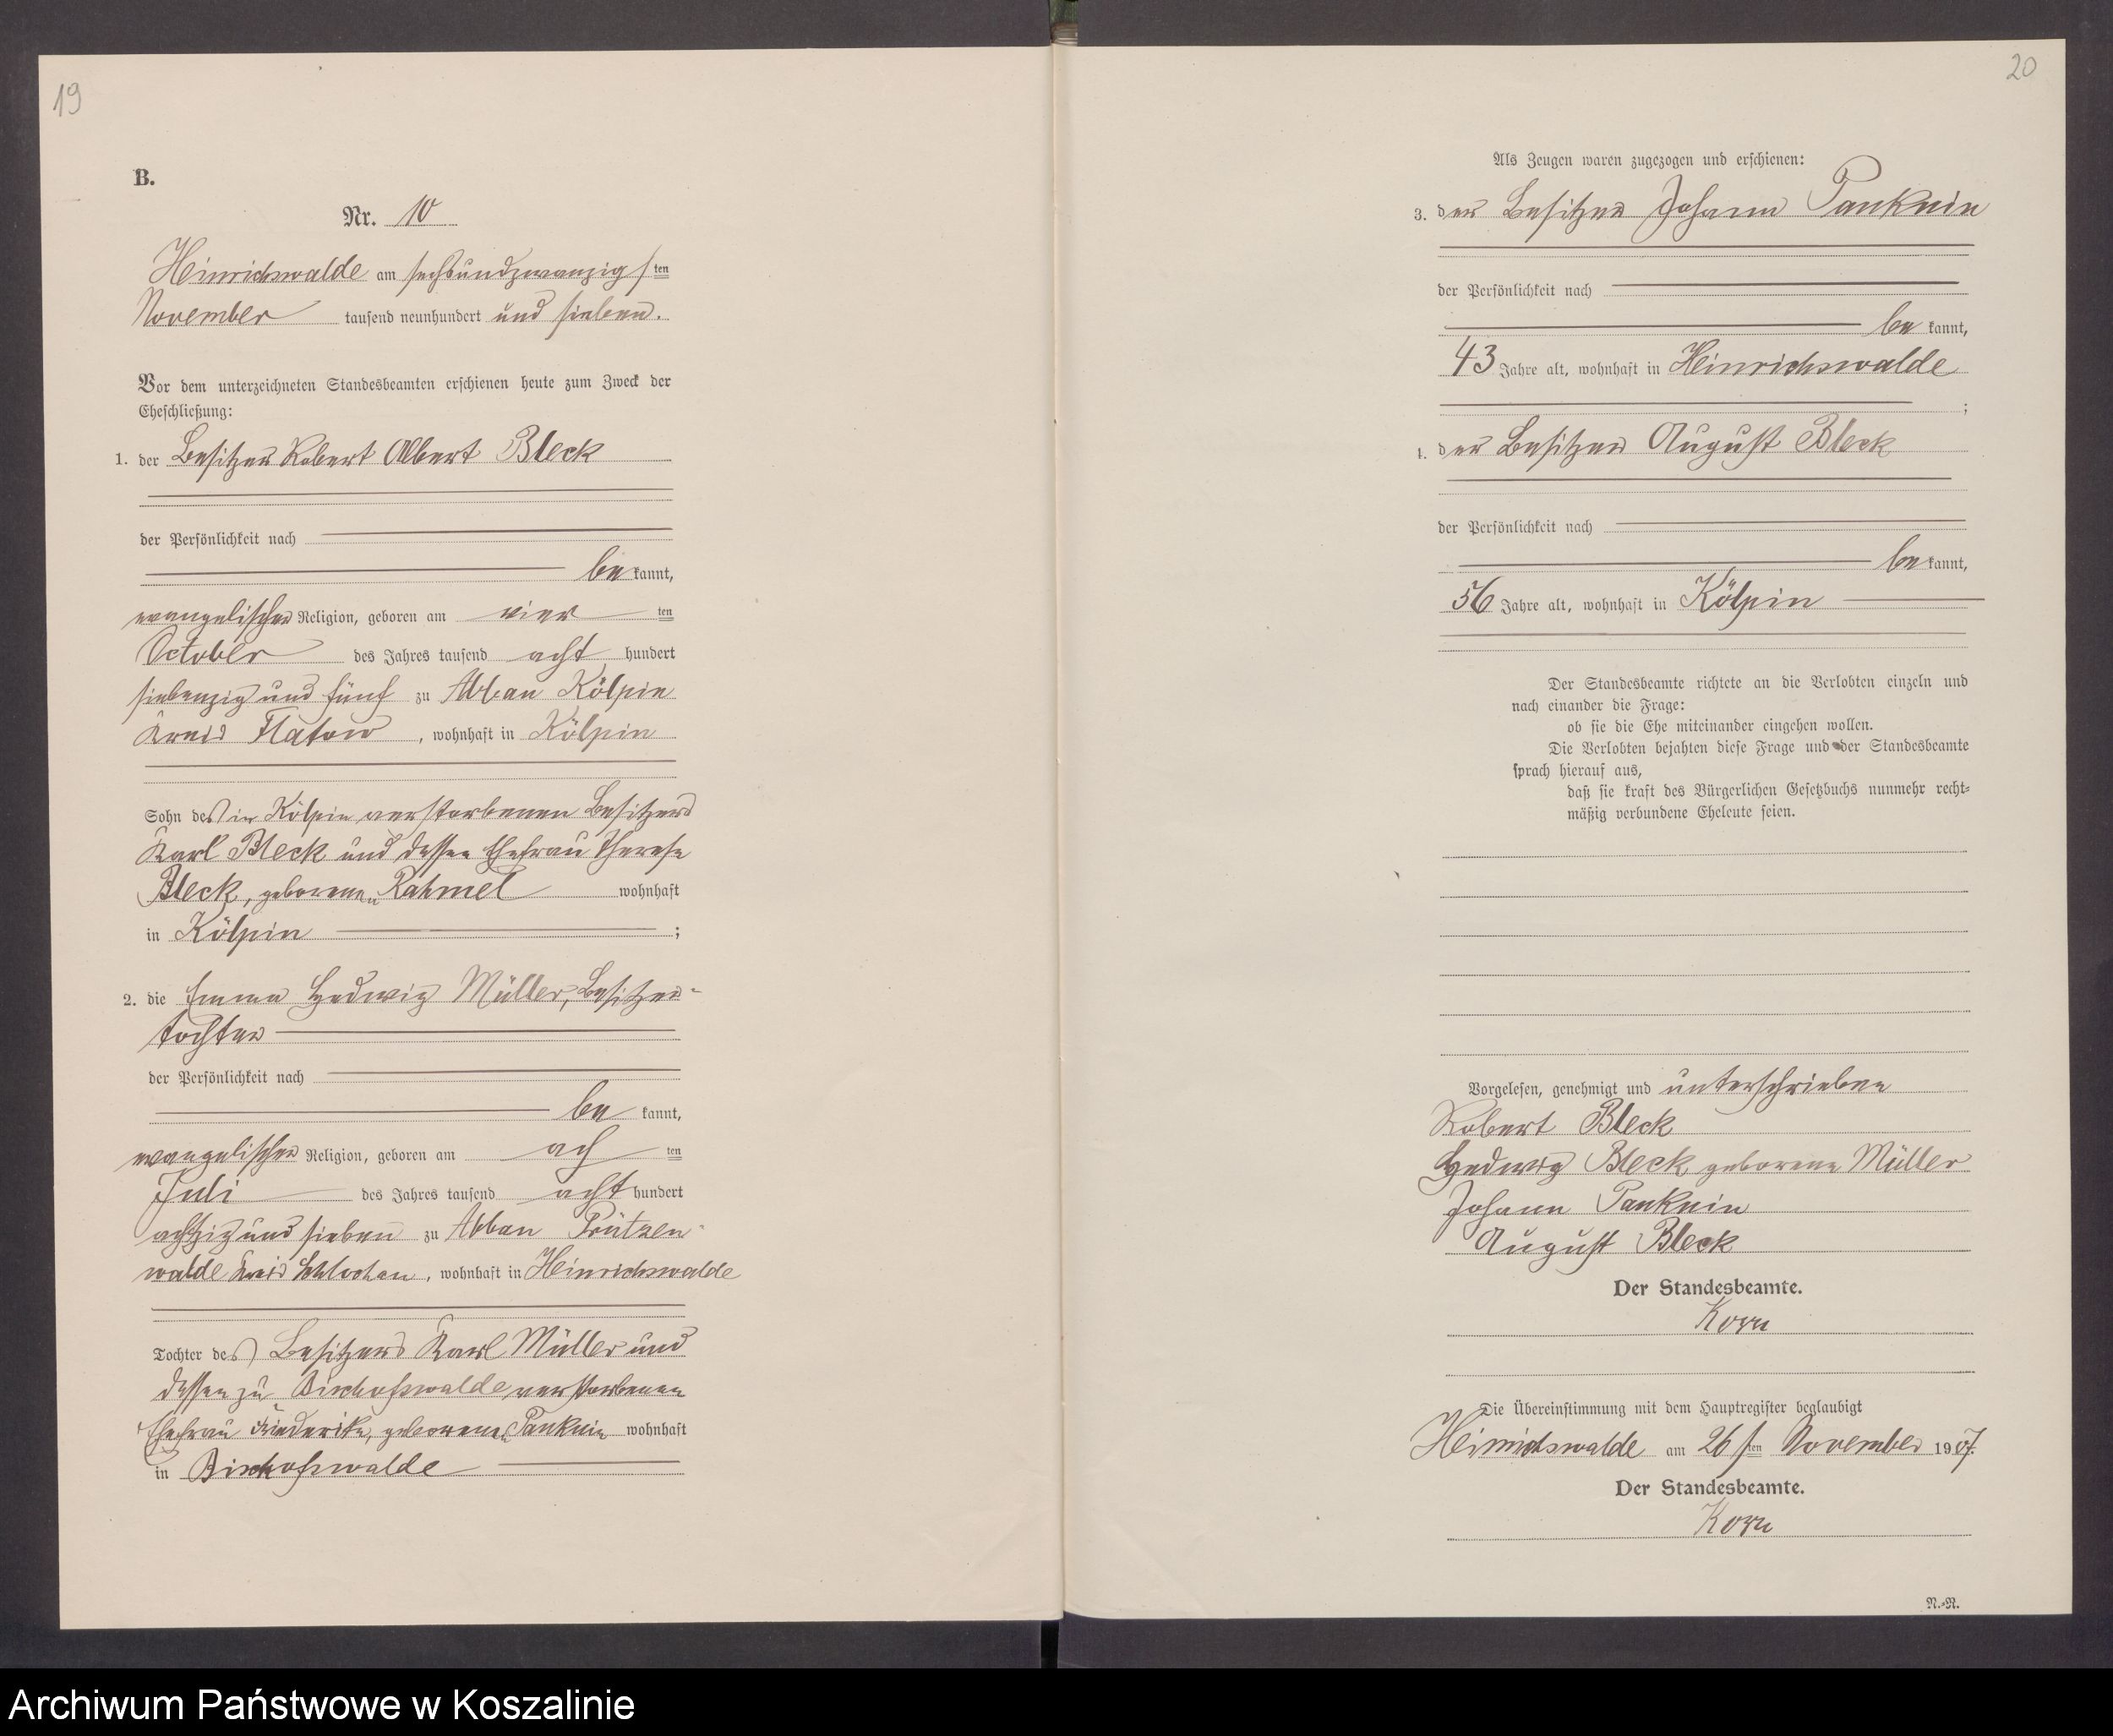 19
B.
Nr. 10
Heinrichswalde am sechsundzwanzigsten
November tausend neunhundert und sieben.
Vor dem unterzeichneten Standesbeamten erschienen heute zum Zweck der
Eheschließung:
1. der Besitzer Robert Albert Bleck
der Persönlichkeit nach
bekannt,
evangelischer Religion, geboren am vierten
October des Jahres tausend acht hundert
siebenzig und fünf zu Abbau Kölpin
Kreis Flatow, wohnhaft in Kölpin
Sohn des in Kölpin verstorbenen Besitzers
Karl Bleck und dessen Ehefrau Therese
Bleck, geborenen Rahmel wohnhaft
in Kölpin ;
2. die Emma Hedwig Müller, Besitzer-
tochter
der Persönlichkeit nach
bekannt,
evangelischer Religion, geboren am achten
Juli des Jahres tausend acht hundert
achtzig und sieben zu Abbau Prützen-
walde Kreis Schlochau, wohnhaft in Heinrichswalde
Tochter des Besitzers Karl Müller und
dessen zu Bischofswalde verstorbenen
Ehefrau Friederike, geborenen Panknin wohnhaft
in Bischofswalde
20
Als Zeugen waren zugezogen und erschienen:
3. der Besitzer Johann Panknin
der Persönlichkeit nach
bekannt,
43 Jahre alt, wohnhaft in Heinrichswalde
;
4. der Besitzer August Bleck
der Persönlichkeit nach
bekannt,
56 Jahre alt, wohnhaft in Kölpin
Der Standesbeamte richtete an die Verlobten einzeln und
nach einander die Frage:
ob sie die Ehe miteinander eingehen wollen.
Die Verlobten bejahten diese Frage und der Standesbeamte
sprach hierauf aus,
daß sie kraft des Bürgerlichen Gesetzbuchs nunmehr recht-
mäßig verbundene Eheleute seien.
Vorgelesen, genehmigt und unterschrieben
Robert Bleck
Hedwig Bleck geborene Müller
Johann Panknin
August Bleck
Der Standesbeamte.
Korn
Die Übereinstimmung mit dem Hauptregister beglaubigt
Heinrichswalde am 26sten November 1907.
Der Standesbeamte.
Korn
N.-R.
Archiwum Państwowe w Koszalinie